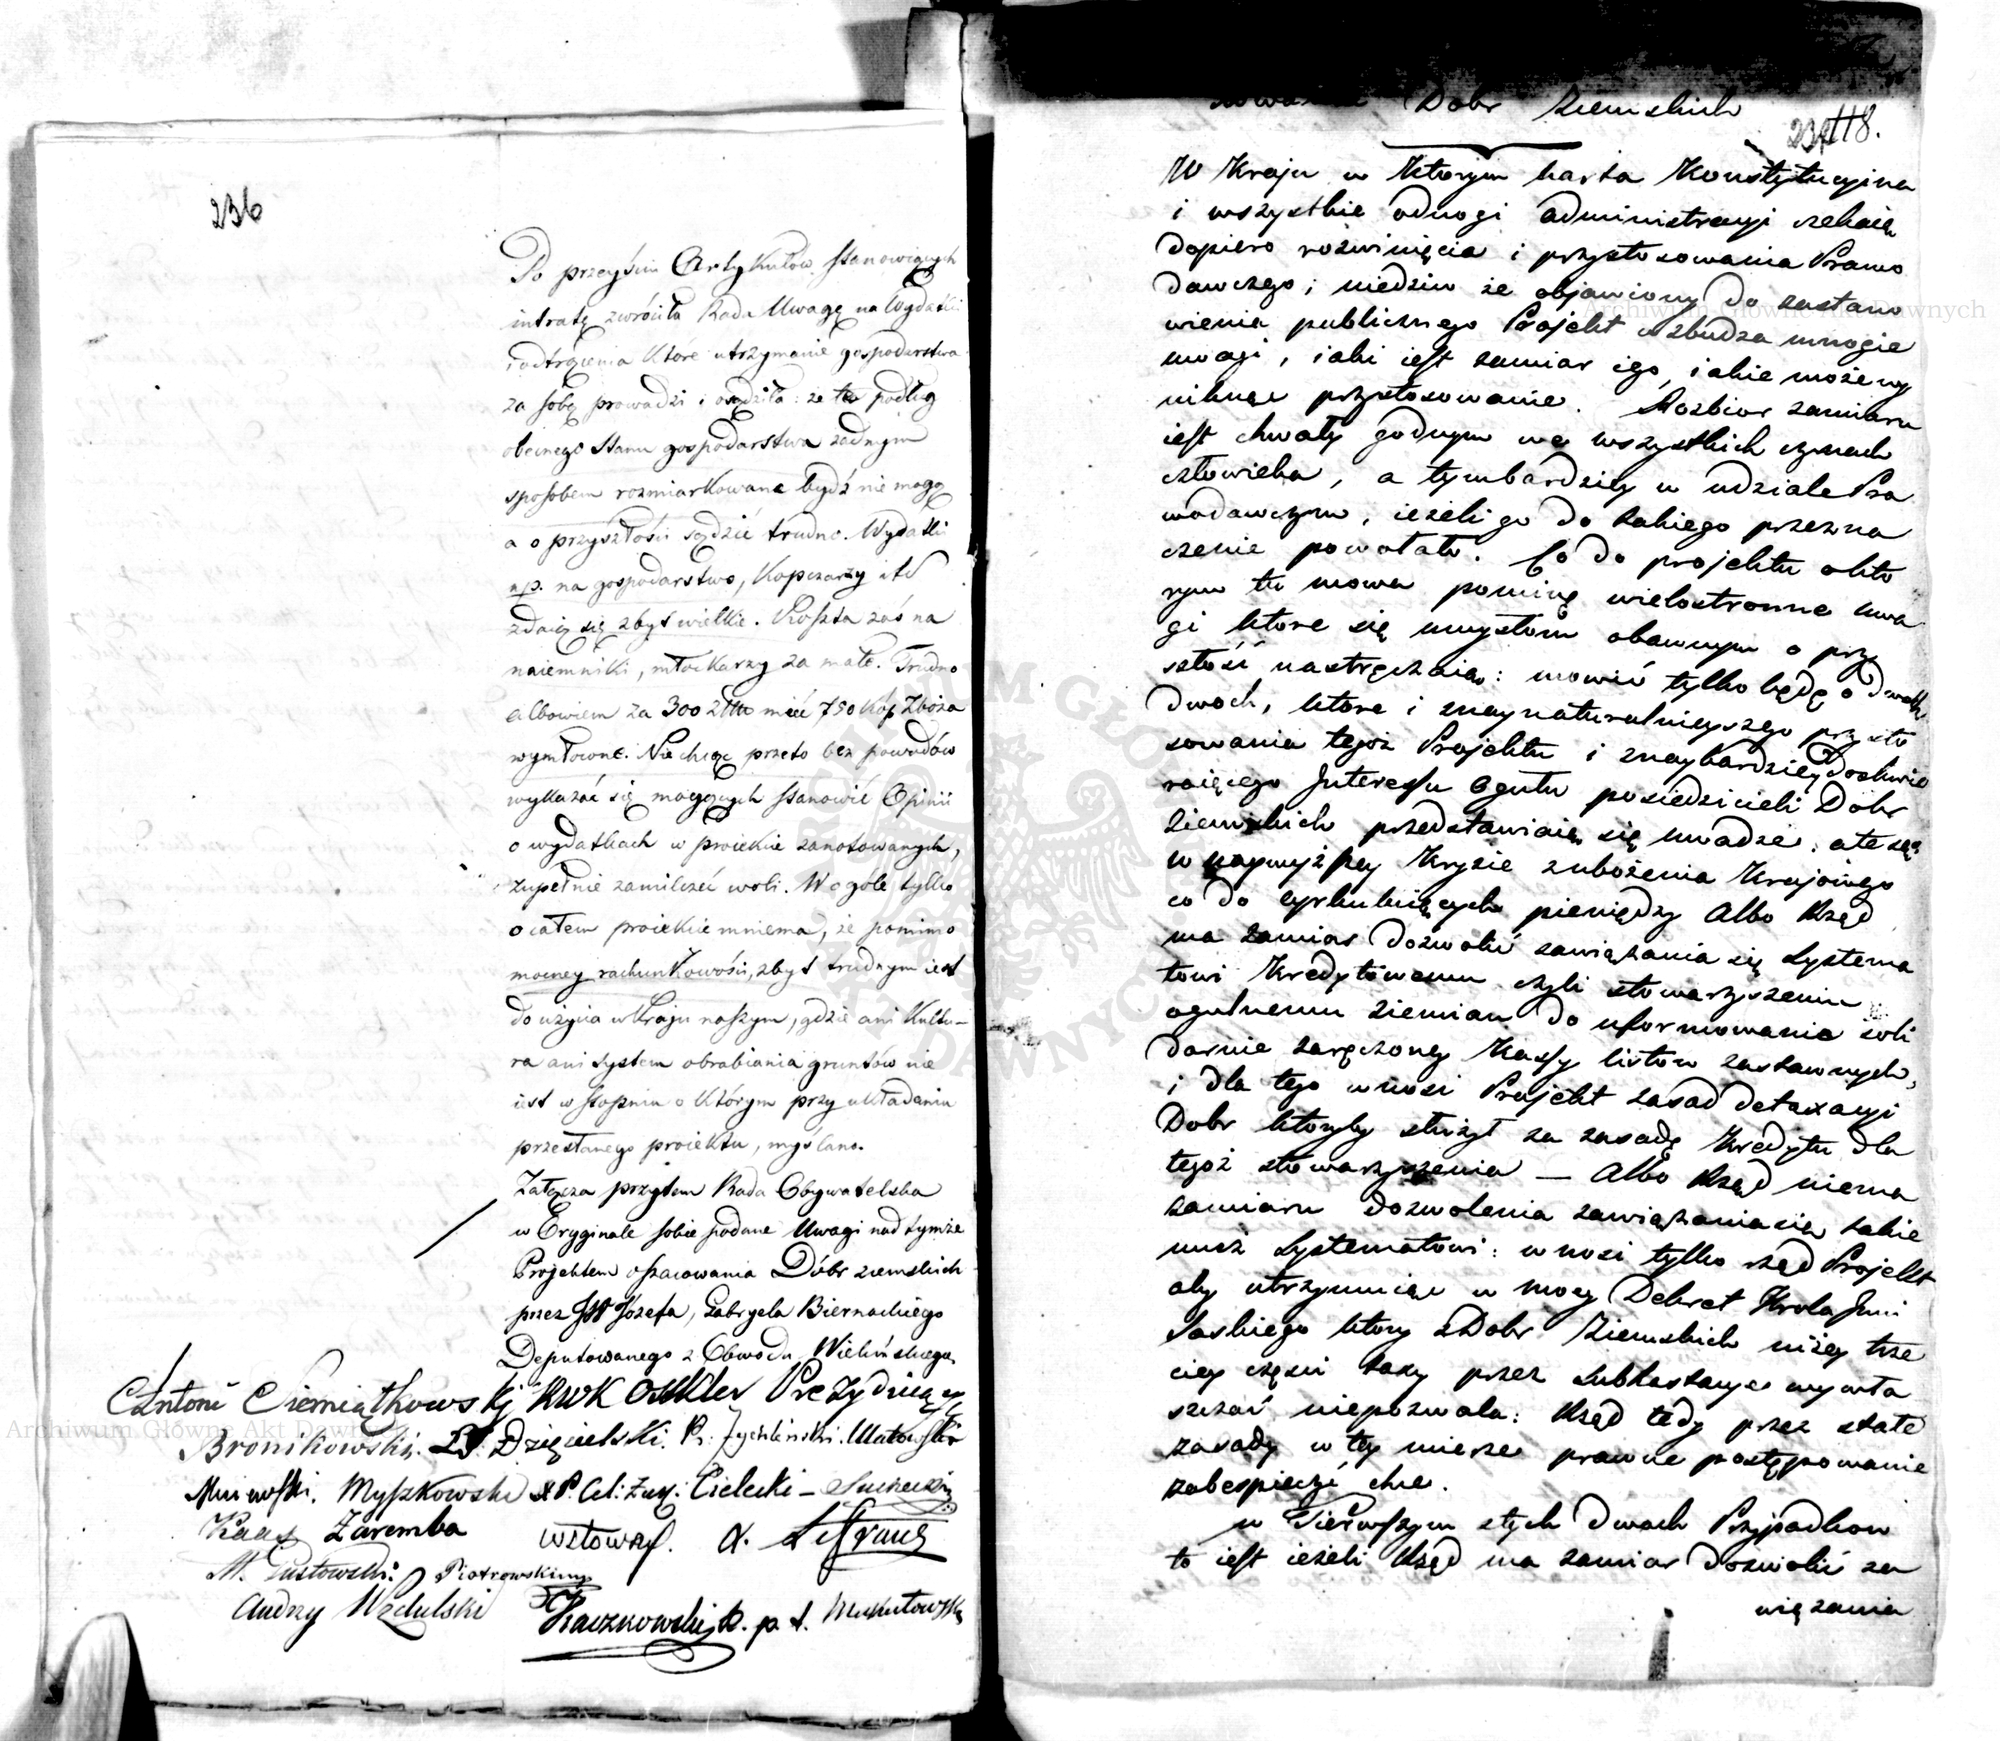 236
Po przeyściu Artykułów stanowiących
intratę zwróciła Rada Uwagę na Wydatki
i odtrącenia które utrzymanie gospodarstwa
za sobą prowadzi i osądziła: że te podług
obecnego stanu gospodarstwa żadnym
sposobem rozmiarkowane bydź nie mogą
a o przyszłości sądzić trudno. Wydatki
np. na gospodarstwo, Kopczarzy itd
zdaią się zbyt wielkie. Koszta zaś na
naiemniki, młockarzy za małe. Trudno
albowiem za 300 zło mieć 750 kóp Zboża
wymłócone. Nie chcąc przeto bez powodów
wykazać się mogących stanowić Opinii
o wydatkach w proiekcie zanotowanych,
zupełnie zamilczeć woli. W ogóle tylko
o całem proiekcie mniema, że pomimo
mocney rachunkowości, zbyt trudnym iest
do użycia w Kraju naszym, gdzie ani Kultu-
ra ani system obrabiania gruntów nie
iest w stopniu o którym przy układaniu
przesłanego proiektu, myślano.
Załącza przytem Rada Obywatelska
w Oryginale sobie podane Uwagi nad tymże
Projektem oszacowania Dóbr ziemskich
przez JW Józefa, Gabryela Biernackiego
Deputowanego z Obwodu Wieluńskiego.
Antoni Siemiątkowski RWK Prezyduiący
Bronikowski. Dzięcielski.
Myszkowski Cielecki – Suchecki
Zaremba
Piotrowski
Kaczkowski
Dobr Ziemskich
118.
W Kraju w Którym karta Konstytucyina
i wszystkie odnogi administracyi czekaią
dopiero rozwinięcia i przystosowania Prawo
dawczego; niedziw że objawiony do zastano
wienia publicznego Projekt wzbudza mnogie
uwagi, iaki iest zamiar iego, iakie może wy
niknąć przystosowanie. Rozbior zamiaru
iest chwały godnym we wszystkich czynach
człowieka, a tymbardziey w udziale Pra
wodawczym, ieżeli go do takiego przezna
czenie powołało. Co do projektu o któ
rym tu mowa pominę wielostronne uwa
gi które się umysłom obawnym o przy
szłość nastręczaią: mowić tylko będę o dwoch
dwoch, które i znaynaturalnieyszego przysto
sowania tegoż Projektu i znaybardziey doskwie
raiącego Interessu ogułu posiedzicieli Dobr
Ziemskich przedstawiaią się uwadze: a te są:
w naywyższey Kryzie zubożenia Kraiowego
co do cyrkuluiących pieniędzy Albo Rząd
ma zamiar dozwolić zawiązania się Systema
towi Kredytowemu czyli stowarzyszeniu
ogulnemu ziemian do uformowania soli
darnie zaręczoney Kassy listow zastawnych,
i dla tego wnosi Projekt zasad detaxacyi
Dobr któryby służył za zasadę Kredytu dla
tegoż stowarzyszenia — Albo Rząd niema
zamiaru dozwolenia zawiązania się takie
muż Systematowi: wnosi tylko rząd Projekt
aby utrzymuiąc w mocy Dekret Krola Jmci
Saskiego który z Dobr Ziemskich niżey trze
ciey częsci taxy przez Subhastacye wywła
szczać niepozwala: Rząd tedy przez stałe
zasady w tey mierze prawne postępowanie
zabespieczyć chce.
w Pierwszym z tych dwoch Przypadkow
to iest ieżeli Rząd ma zamiar dozwolić za
wiązania